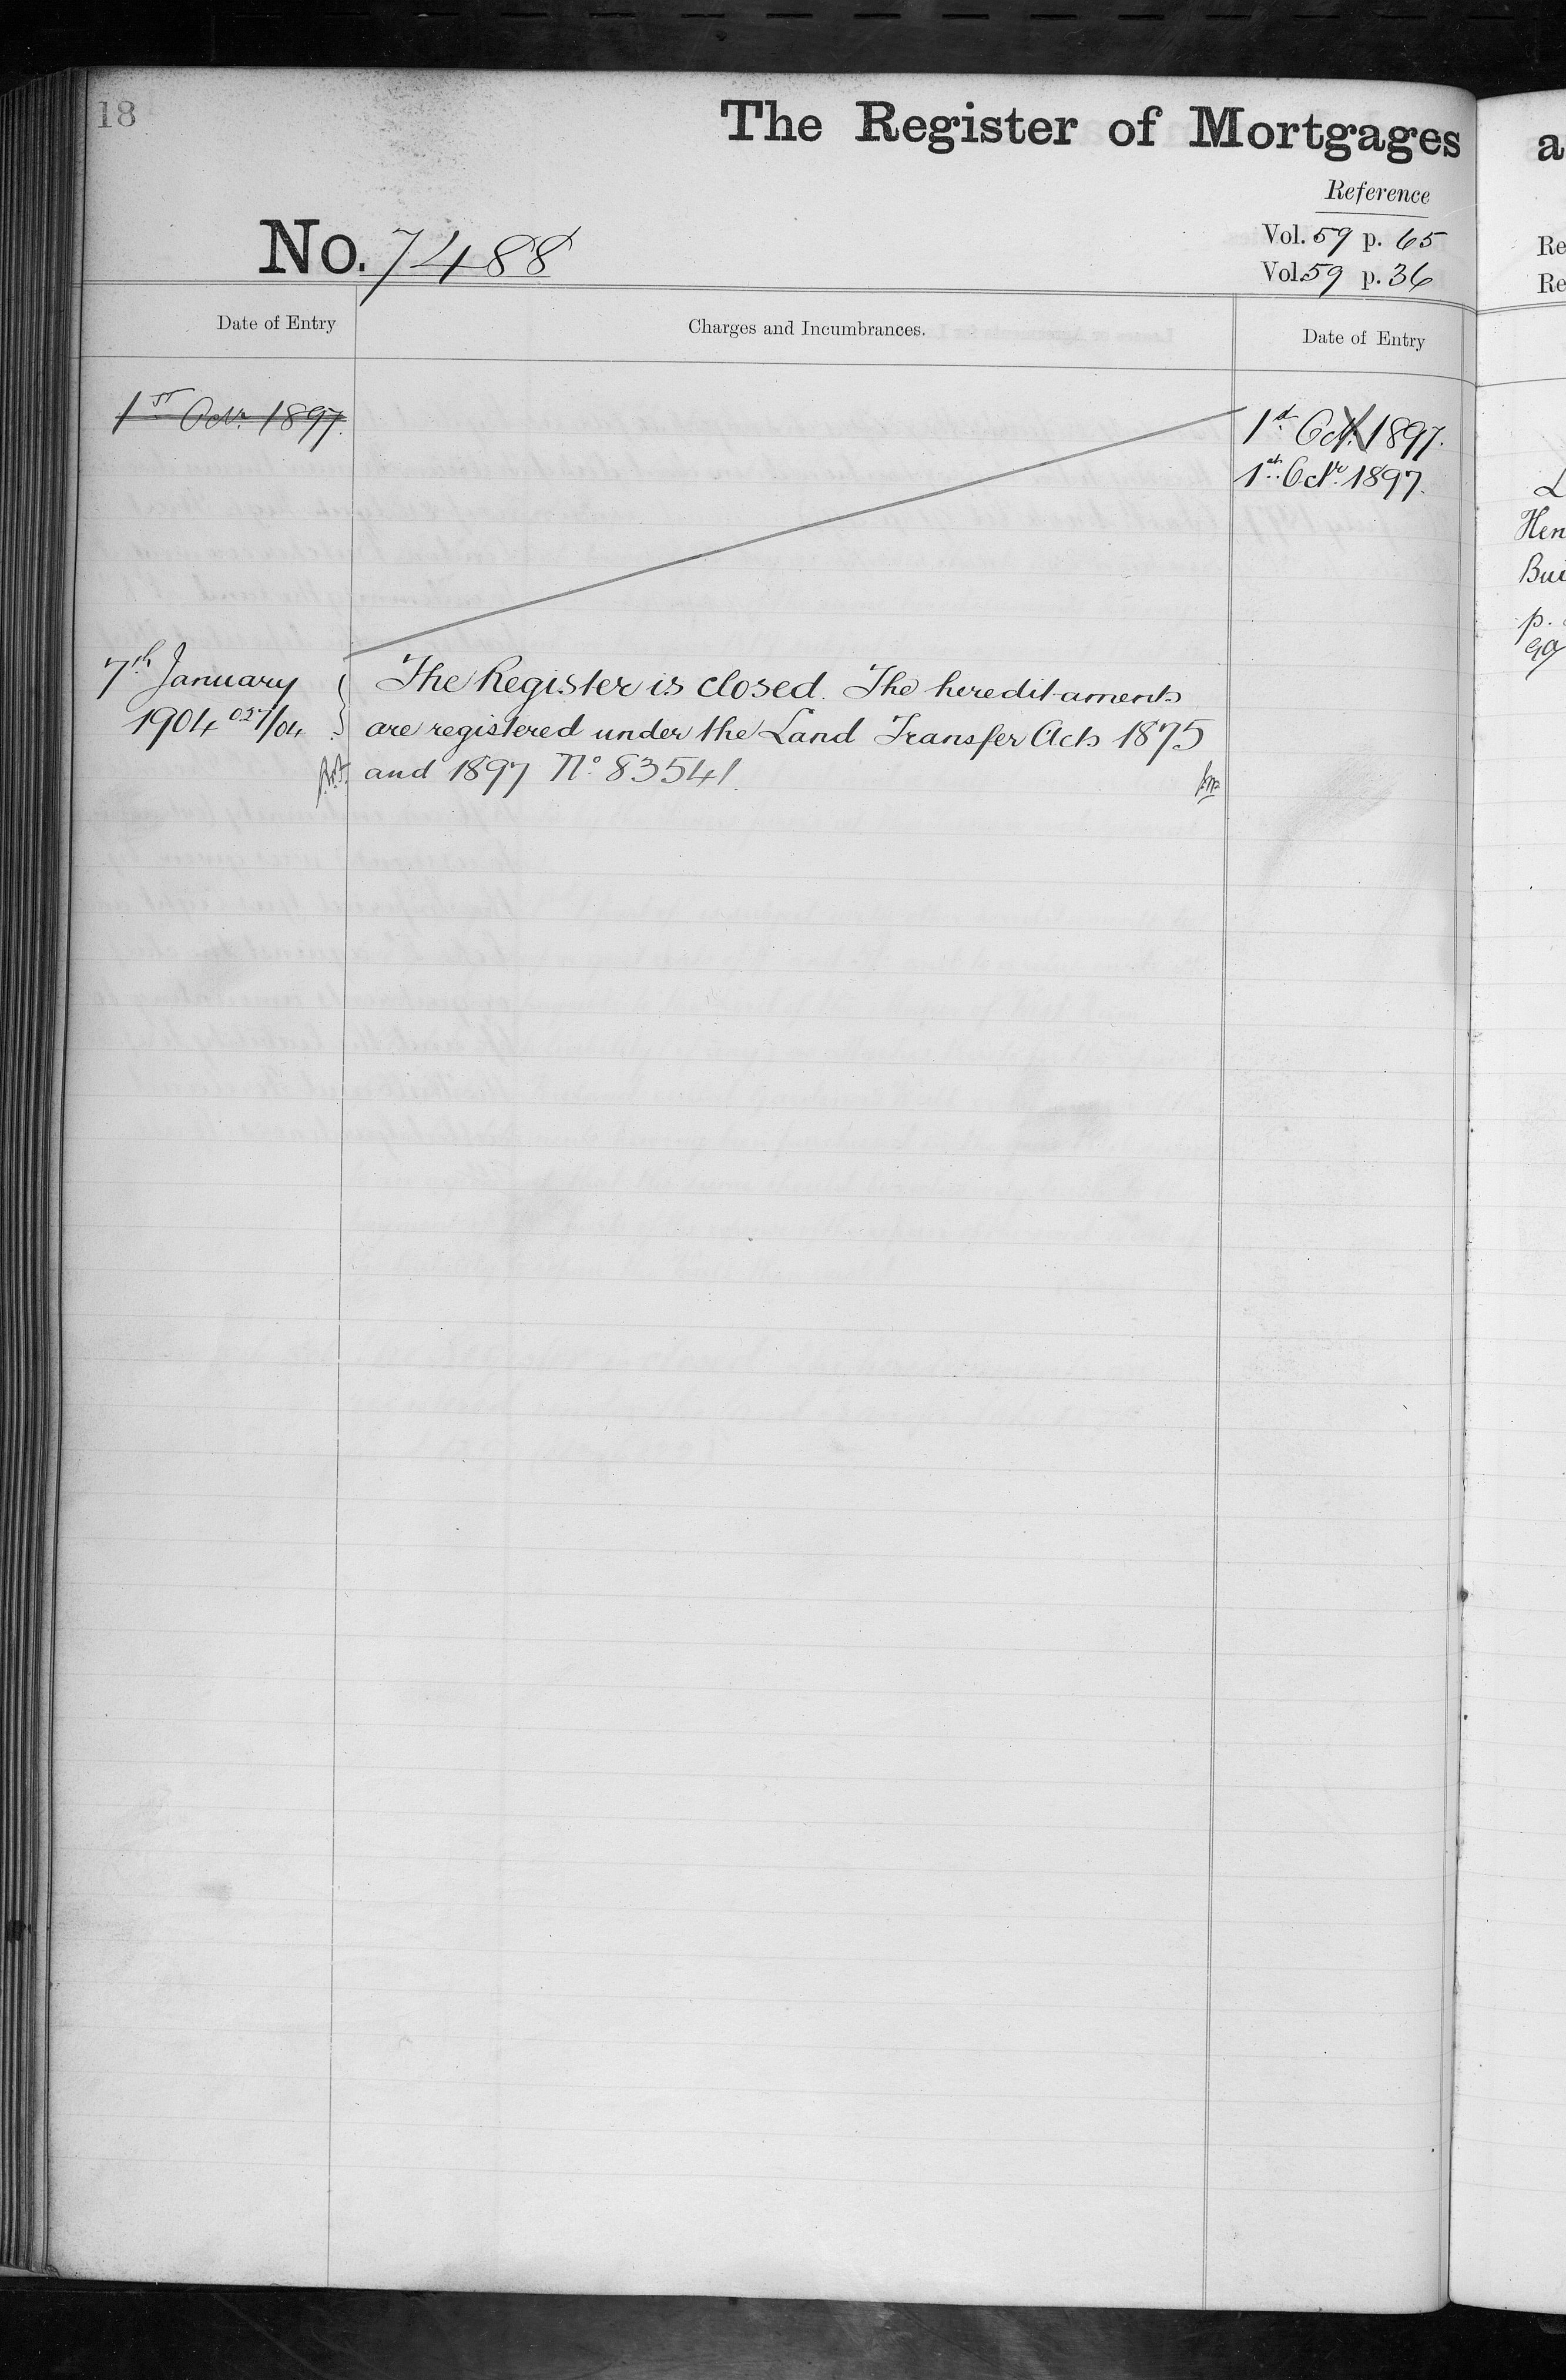 18
The Register of Mortgages
Reference
No. 7488
Vol. 59 p. 65
Vol. 59 p. 36
Date of Entry
Charges and Incumbrances.
Date of Entry
1st Octr. 1897.
1st Oct. 1897.
1st Octr. 1897.
7th January
1904 027/04
The Register is closed. The hereditaments
are registered under the Land Transfer Acts 1875
and 1897 No. 83541.
a
Re
Re
L
Hen
Bui
p.